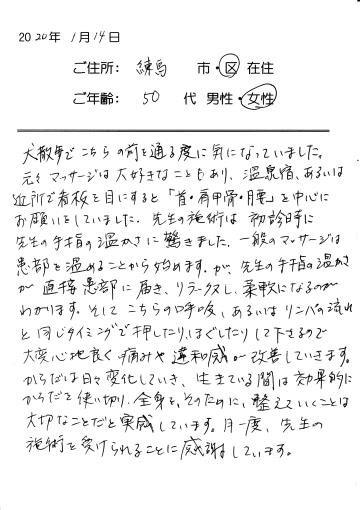 2020年 1月14日
ご住所: 練馬 市・区 在住
ご年齢: 50 代 男性・女性
犬散歩でこちらの前を通る度に気になっていました。
元々マッサージは大好きなこともあり、温泉宿、あるいは
近所で看板を目にすると「首・肩甲骨・腰」を中心に
お願いをしていました。先生の施術は初診時に
先生の手指の温かさに驚きました。一般のマッサージは
患部を温めることから始めます。が、先生の手指の温かさ
が直接患部に届き、リラックスし、柔軟になるのが
わかります。そしてこちらの呼吸、あるいはリンパの流れ
と同じタイミングで押したり、ほぐしたりして下さるので
大変心地良く痛みや違和感が改善していきます。
からだは日々変化していき、生きている間は効果的に
からだを使い切り、全身を、そのために、整えていくことは
大切なことだと実感しています。月一度、先生の
施術を受けられることに感謝しています。